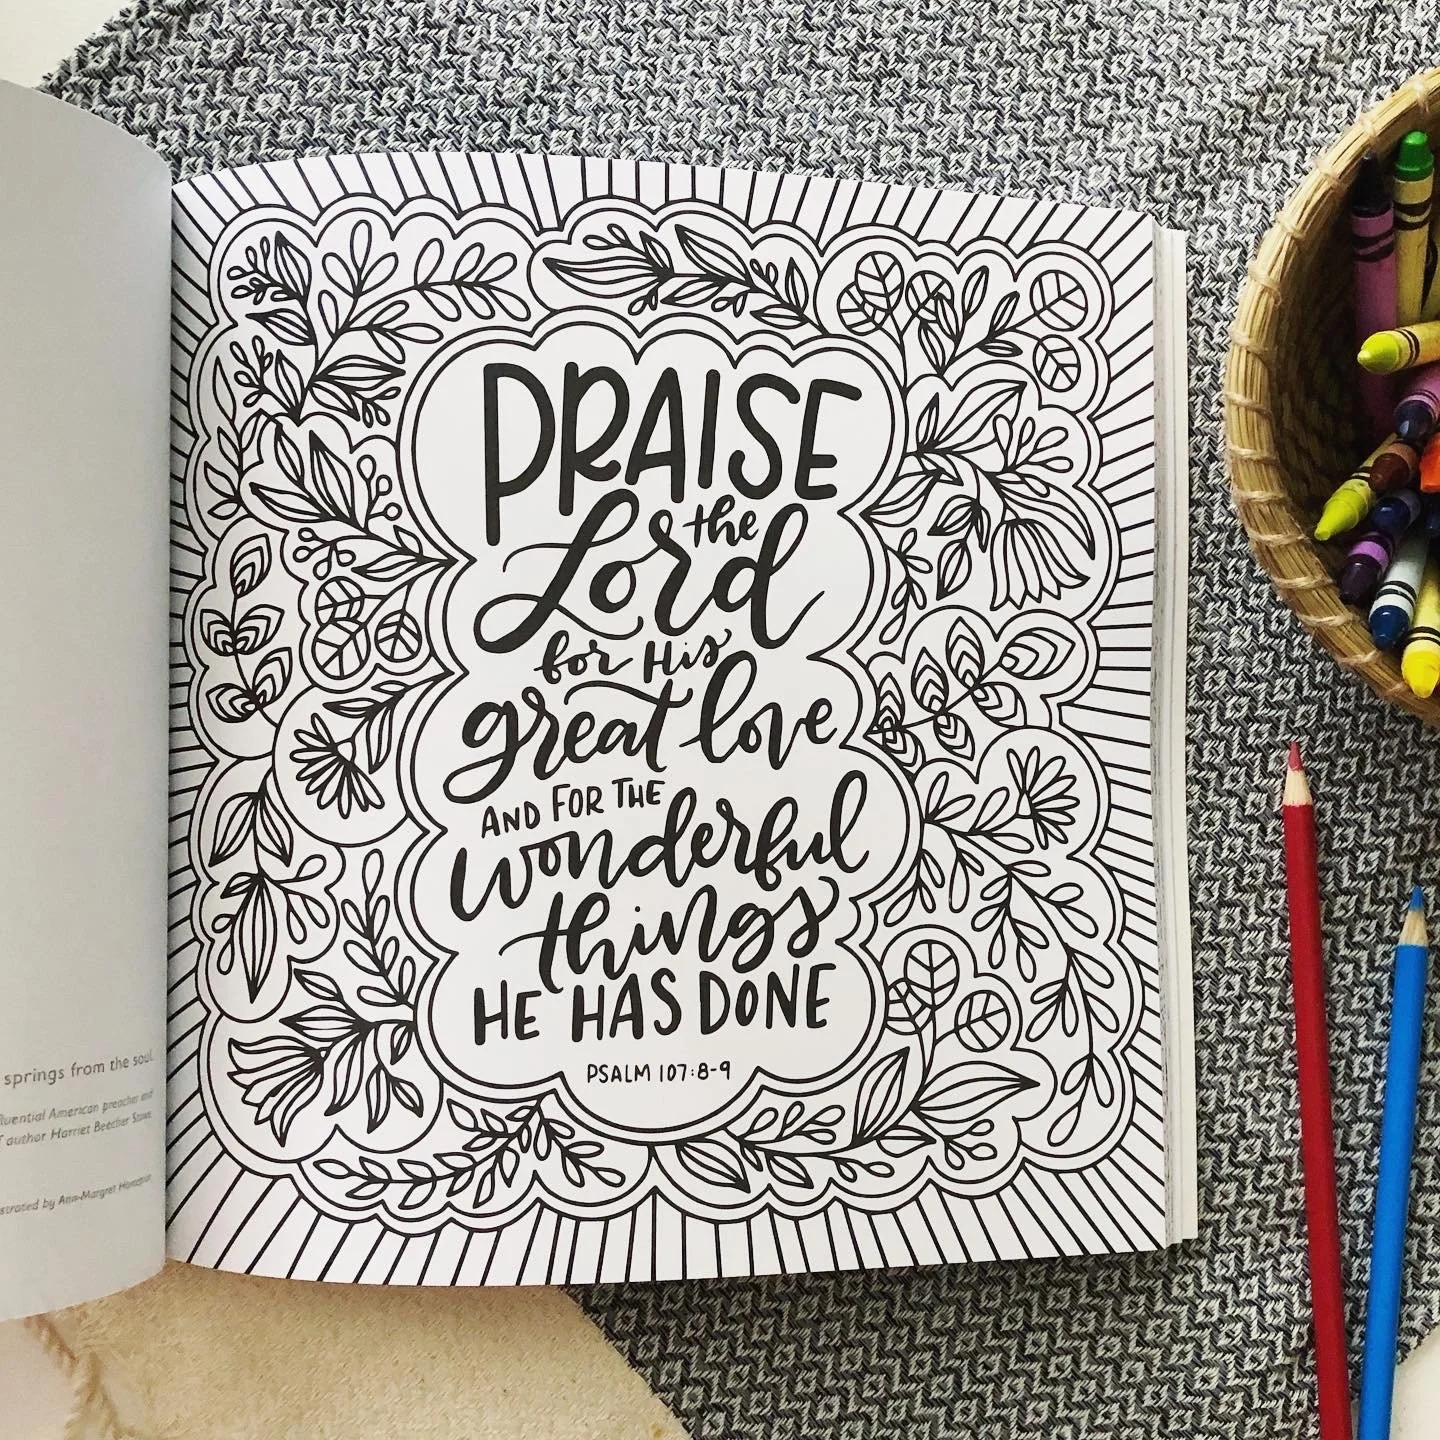 springs from the soul.
fluential American preacher and
author Harriet Beecher Stowe.
strated by Ann-Margret Hovsepian
PRAISE
the
Lord
for His
great love
AND FOR THE
wonderful
things
HE HAS DONE
PSALM 107:8-9